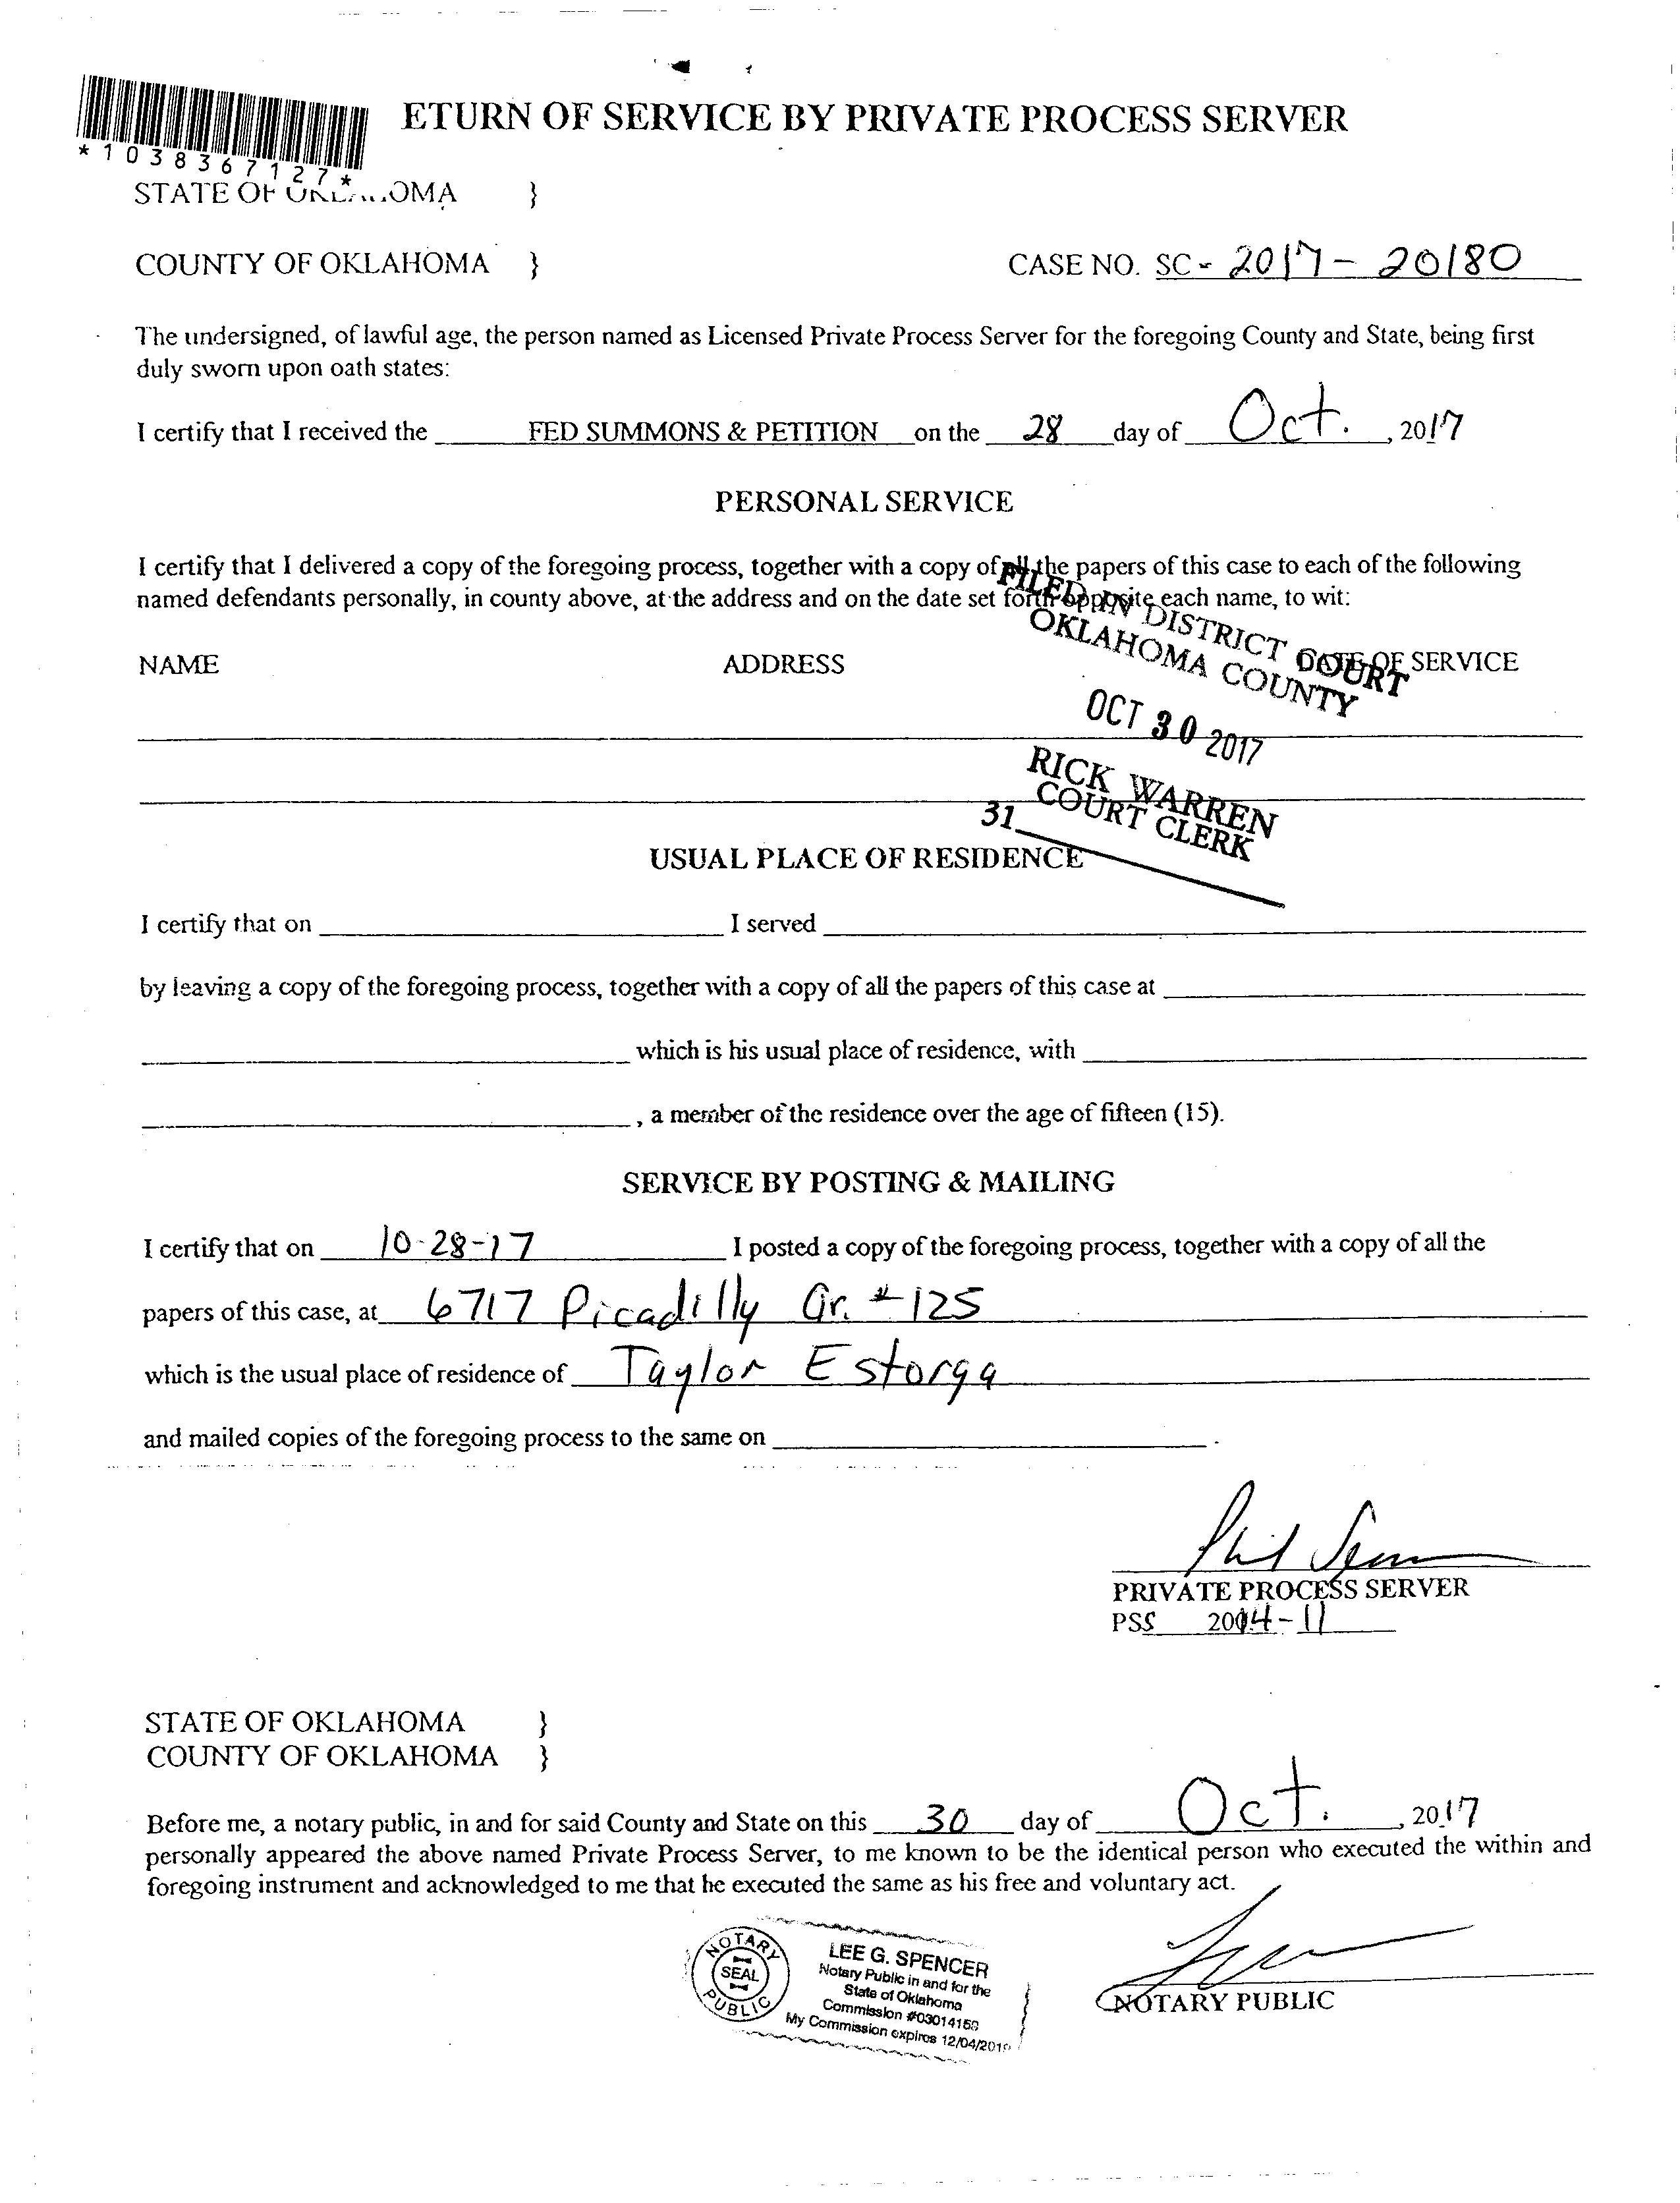 ETURN OF SERVICE BY PRIVATE PROCESS SERVER
*1038367127*
STATE OF OKLA...OMA }
COUNTY OF OKLAHOMA } CASE NO. SC - 2017 - 20180
The undersigned, of lawful age, the person named as Licensed Private Process Server for the foregoing County and State, being first
duly sworn upon oath states:
I certify that I received the FED SUMMONS & PETITION on the 28 day of Oct. , 2017
PERSONAL SERVICE
I certify that I delivered a copy of the foregoing process, together with a copy of all the papers of this case to each of the following
named defendants personally, in county above, at the address and on the date set forth opposite each name, to wit:
NAME ADDRESS DATE OF SERVICE
FILED IN DISTRICT COURT
OKLAHOMA COUNTY
OCT 30 2017
RICK WARREN
COURT CLERK
31
USUAL PLACE OF RESIDENCE
I certify that on I served
by leaving a copy of the foregoing process, together with a copy of all the papers of this case at
which is his usual place of residence, with
, a member of the residence over the age of fifteen (15).
SERVICE BY POSTING & MAILING
I certify that on 10-28-17 I posted a copy of the foregoing process, together with a copy of all the
papers of this case, at 6717 Picadilly Cir. #125
which is the usual place of residence of Taylor Estorga
and mailed copies of the foregoing process to the same on .
PRIVATE PROCESS SERVER
PSS 2004-11
STATE OF OKLAHOMA }
COUNTY OF OKLAHOMA }
Before me, a notary public, in and for said County and State on this 30 day of Oct. , 2017
personally appeared the above named Private Process Server, to me known to be the identical person who executed the within and
foregoing instrument and acknowledged to me that he executed the same as his free and voluntary act.
NOTARY PUBLIC
NOTARY
SEAL
PUBLIC
LEE G. SPENCER
Notary Public in and for the
State of Oklahoma
Commission #03014159
My Commission expires 12/04/2019